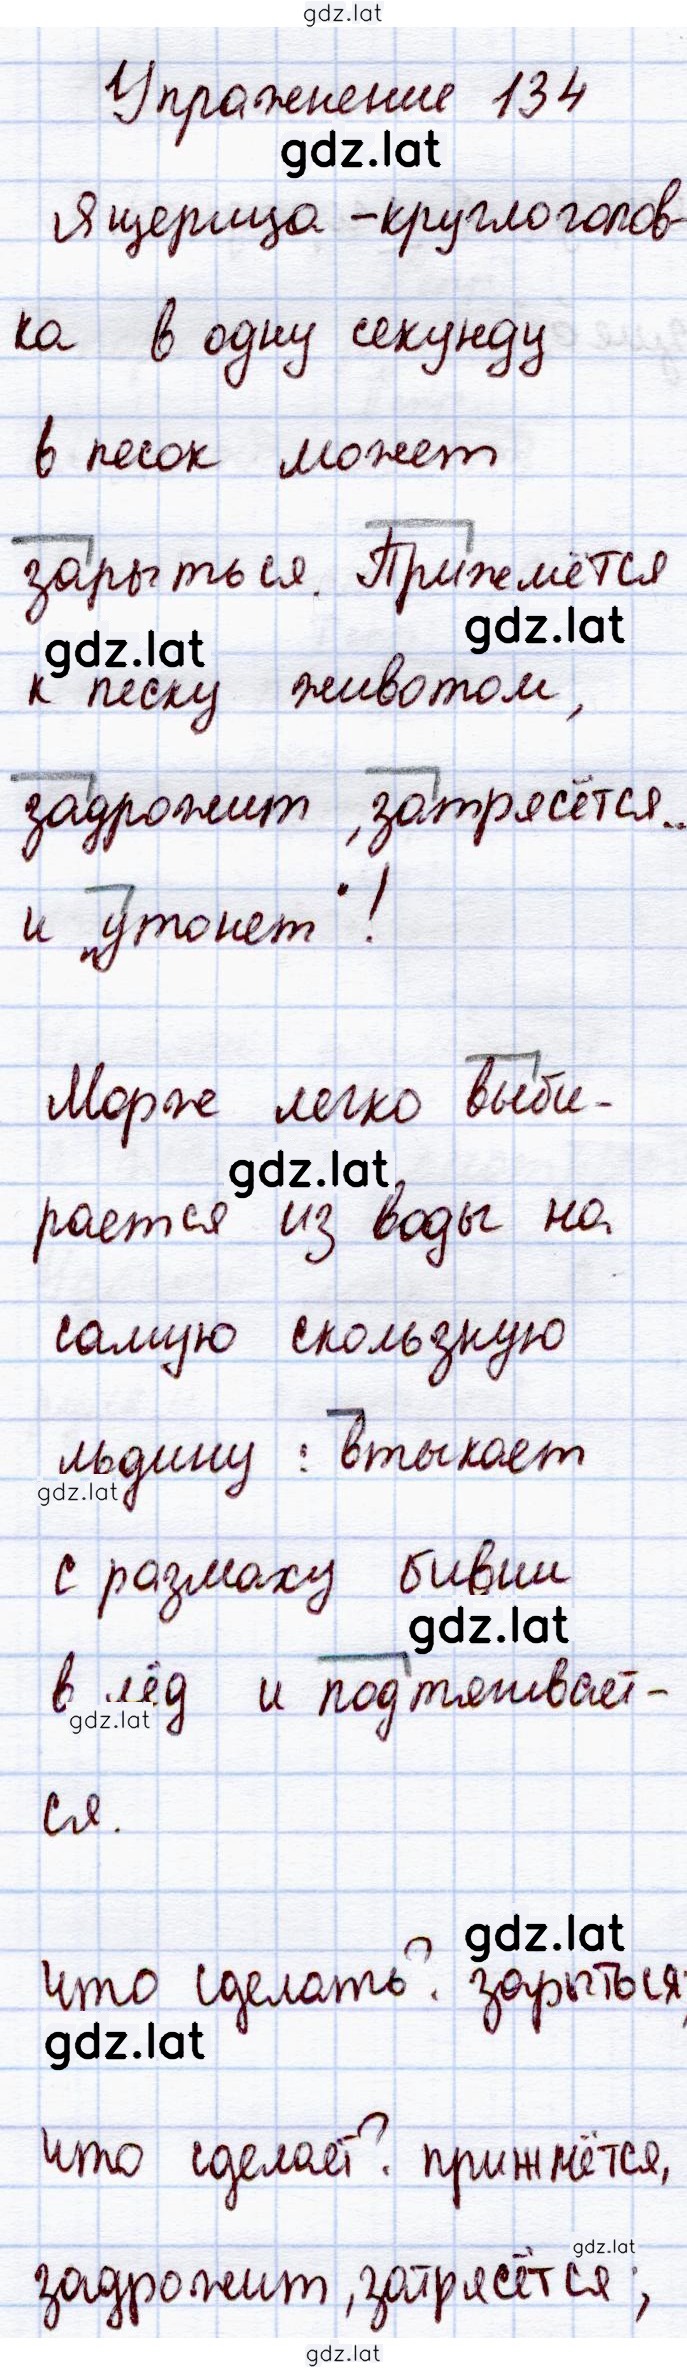 gdz.lat
Упражнение 134
gdz.lat
Ящерица-круглоголов-
ка в одну секунду
в песок может
зарыться. Прижмётся
gdz.lat
gdz.lat
к песку животом,
задрожит, затрясётся..
и "утонет"!
Морж легко выби-
gdz.lat
рается из воды на
самую скользную
льдину: втыкает
gdz.lat
с размаху бивни
gdz.lat
в лёд и подтягивает-
gdz.lat
ся.
gdz.lat
что сделать? зарыться;
gdz.lat
что сделает? прижмётся,
gdz.lat
задрожит, затрясётся;
gdz.lat